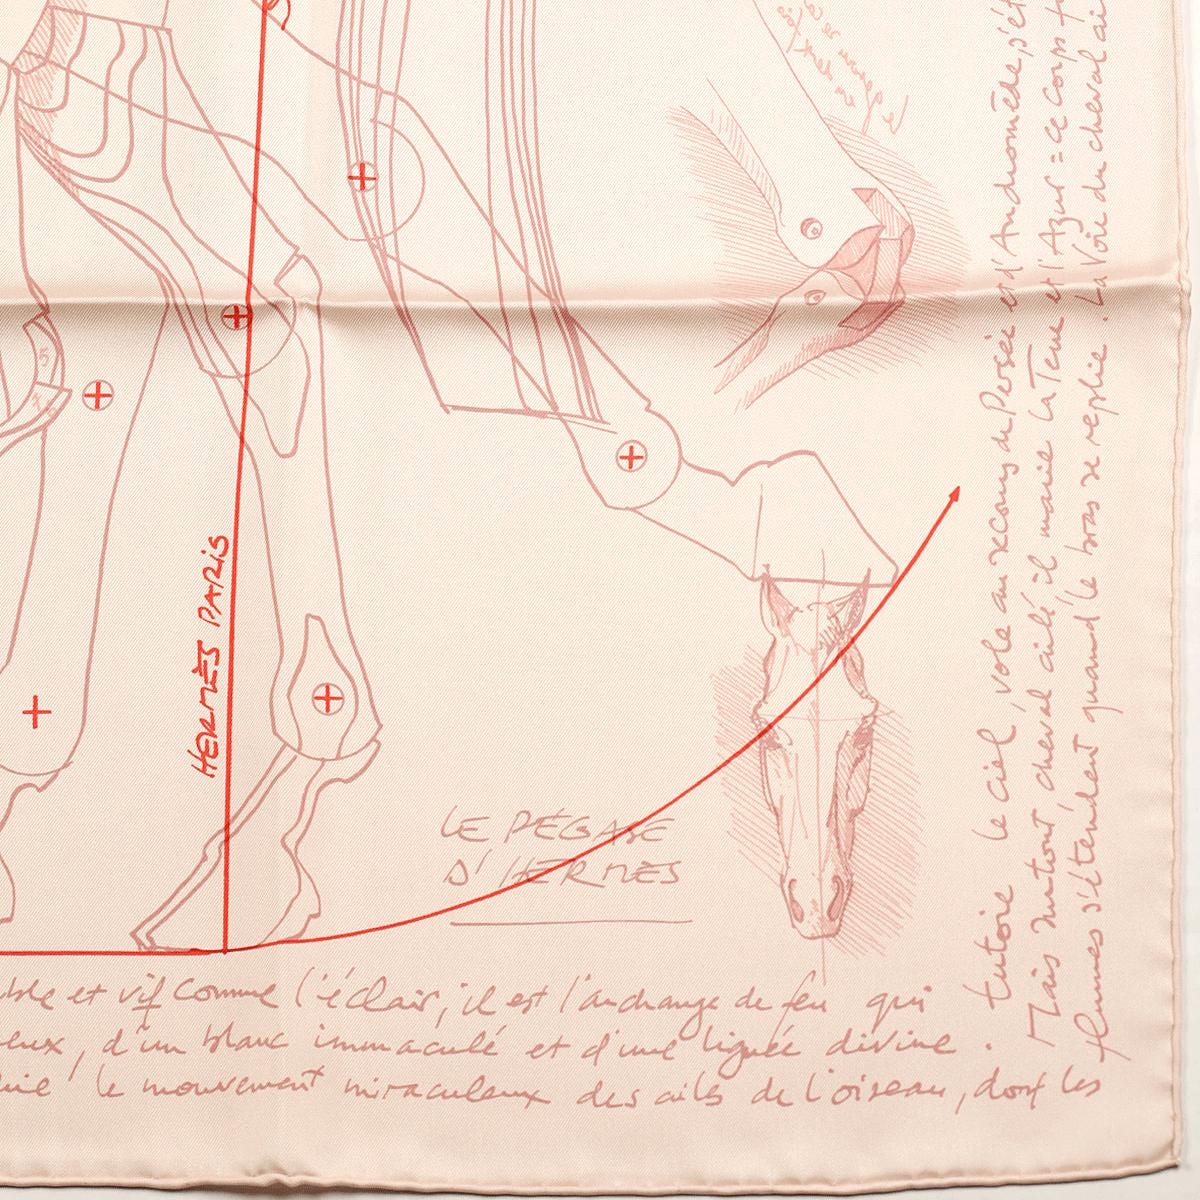 HERMÈS PARIS
LE PÉGASE
D'HERMÈS
et vif comme l'éclair, il est l'archange de feu qui
d'un blanc immaculé et d'une lignée divine.
le mouvement miraculeux des ailes de l'oiseau, dont les
tutoie le ciel, vole au secours de Persée et d'Andromède,
Mais surtout cheval ailé il marie la Terre et l'Azur = ce corps
plumes s'étendent quand le bras se replie. La Voie du cheval